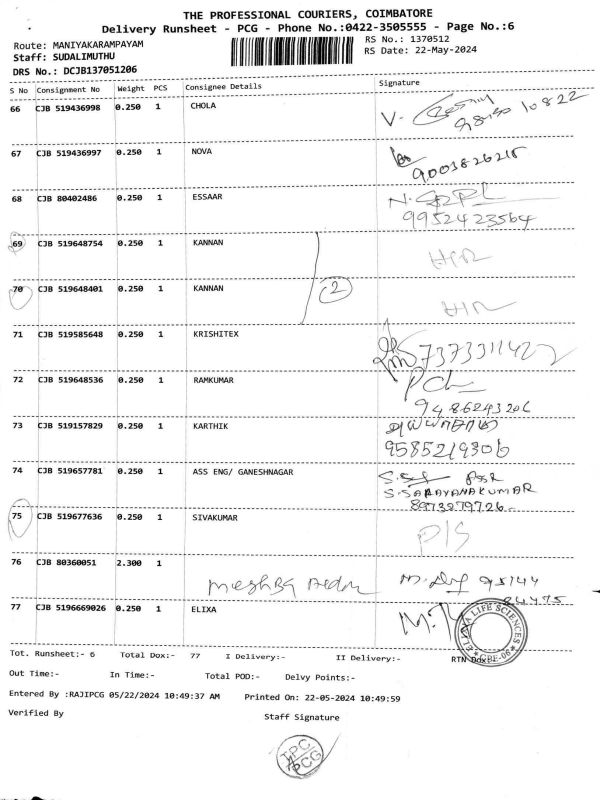 THE PROFESSIONAL COURIERS, COIMBATORE
Delivery Runsheet - PCG - Phone No.:0422-3505555 - Page No.:6
Route: MANIYAKARAMPAYAM
RS No.: 1370512
Staff: SUDALIMUTHU
RS Date: 22-May-2024
DRS No.: DCJB137051206
S No Consignment No Weight PCS Consignee Details Signature
66 CJB 519436998 0.250 1 CHOLA
67 CJB 519436997 0.250 1 NOVA
9003826215
68 CJB 80402486 0.250 1 ESSAAR
9952423564
69 CJB 519648754 0.250 1 KANNAN
70 CJB 519648401 0.250 1 KANNAN
2
71 CJB 519585648 0.250 1 KRISHITEX
7373311422
72 CJB 519648536 0.250 1 RAMKUMAR
9486243206
73 CJB 519157829 0.250 1 KARTHIK
9585219306
74 CJB 519657781 0.250 1 ASS ENG/ GANESHNAGAR
S.SARAYANAKUMAR
8973979726
75 CJB 519677636 0.250 1 SIVAKUMAR
76 CJB 80360051 2.300 1
77 CJB 5196669026 0.250 1 ELIXA
Tot. Runsheet:- 6 Total Dox:- 77 I Delivery:- II Delivery:- RTN Dox:-
LIFE SCIENCES
CBE-06
Out Time:- In Time:- Total POD:- Delvy Points:-
Entered By :RAJIPCG 05/22/2024 10:49:37 AM Printed On: 22-05-2024 10:49:59
Verified By Staff Signature
TPC
PCG